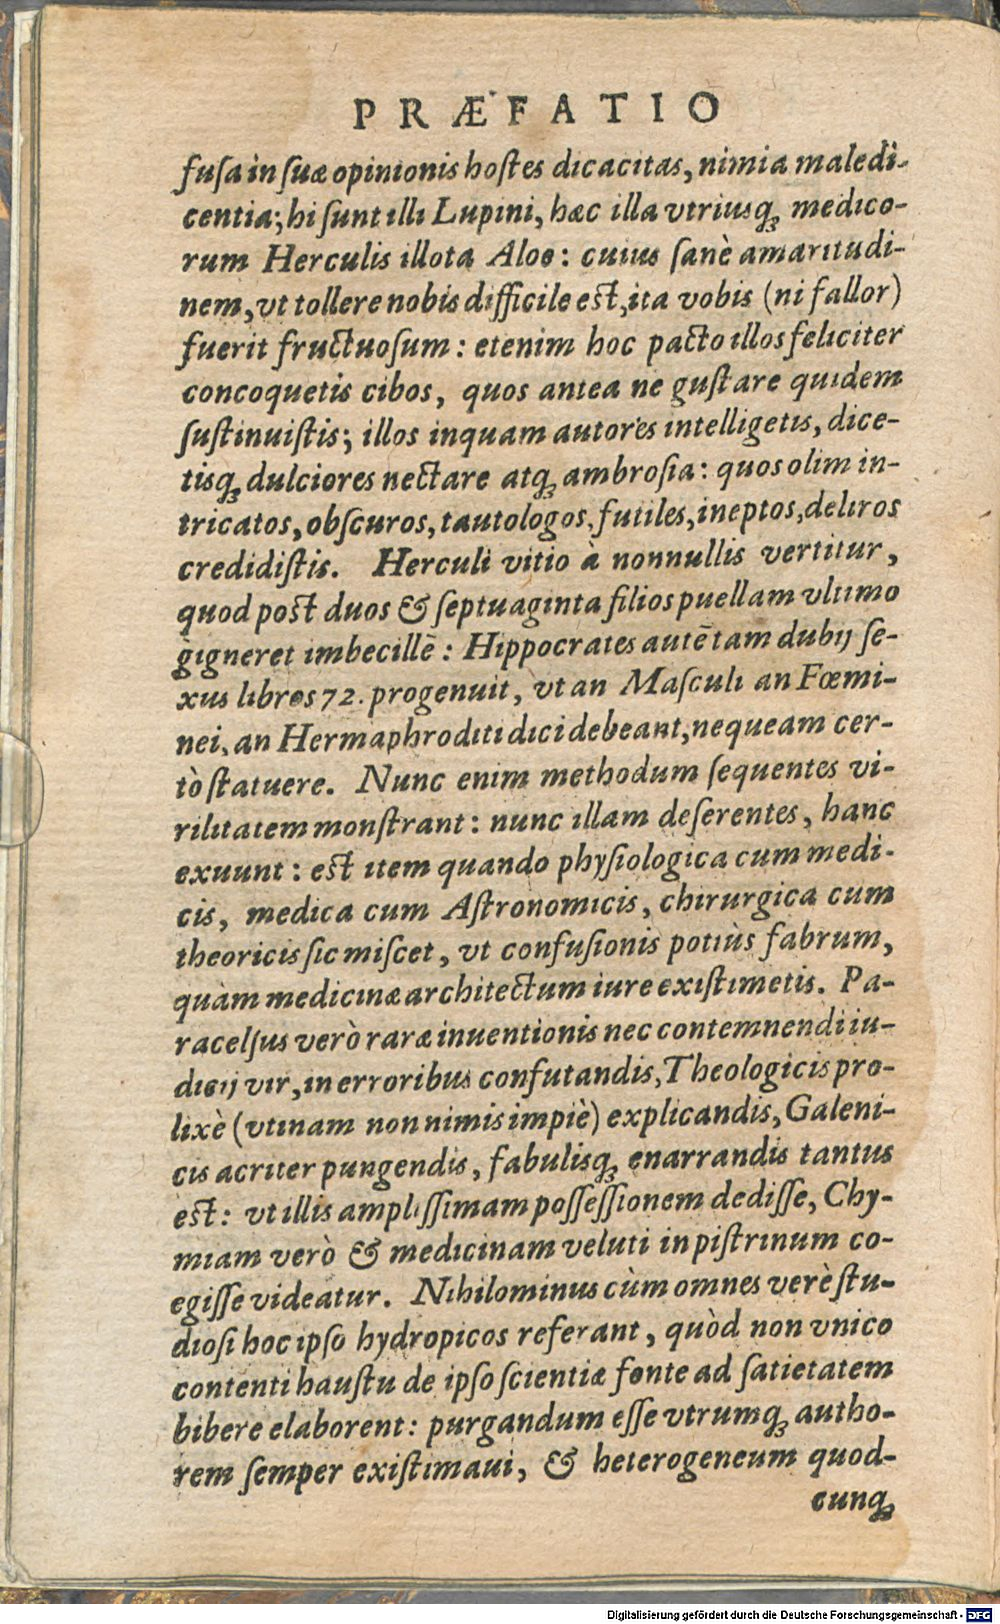 PRÆFATIO
fuſa in ſuæ opinionis hoſtes dicacitas, nimia maledi-
centia; hi ſunt illi Lupini, hæc illa vtriusq; medico-
rum Herculis illota Aloe: cuius ſanè amaritudi-
nem, vt tollere nobis difficile est, ita vobis (ni fallor)
fuerit fructuoſum: etenim hoc pacto illos feliciter
concoquetis cibos, quos antea ne guſtare quidem
ſuſtinuiſtis; illos inquam autores intelligetis, dice-
tisq; dulciores nectare atq; ambroſia: quos olim in-
tricatos, obſcuros, tautologos, futiles, ineptos, deliros
credidiſtis. Herculi vitio à nonnullis vertitur,
quod poſt duos & ſeptuaginta filios puellam vltimo
gigneret imbecillē: Hippocrates autē tam dubij ſe-
xus libros 72. progenuit, vt an Maſculi an Fœmi-
nei, an Hermaphroditi dici debeant, nequeam cer-
tò ſtatuere. Nunc enim methodum ſequentes vi-
rilitatem monſtrant: nunc illam deſerentes, hanc
exuunt: eſt item quando phyſiologica cum medi-
cis, medica cum Aſtronomicis, chirurgica cum
theoricis ſic miſcet, vt confuſionis potiùs fabrum,
quàm medicinæ architectum iure exiſtimetis. Pa-
racelſus verò raræ inuentionis nec contemnendi iu-
dicij vir, in erroribus confutandis, Theologicis pro-
lixè (vtinam non nimis impiè) explicandis, Galeni-
cis acriter pungendis, fabulisq; enarrandis tantus
eſt: vt illis ampliſſimam poſſeſſionem dediſſe, Chy-
miam verò & medicinam veluti in piſtrinum co-
egiſſe videatur. Nihilominus cùm omnes verè ſtu-
dioſi hoc ipſo hydropicos referant, quòd non vnico
contenti hauſtu de ipſo ſcientiæ fonte ad ſatietatem
bibere elaborent: purgandum eſſe vtrumq; autho-
rem ſemper exiſtimaui, & heterogeneum quod-
cunq;
Digitalisierung gefördert durch die Deutsche Forschungsgemeinschaft - DFG